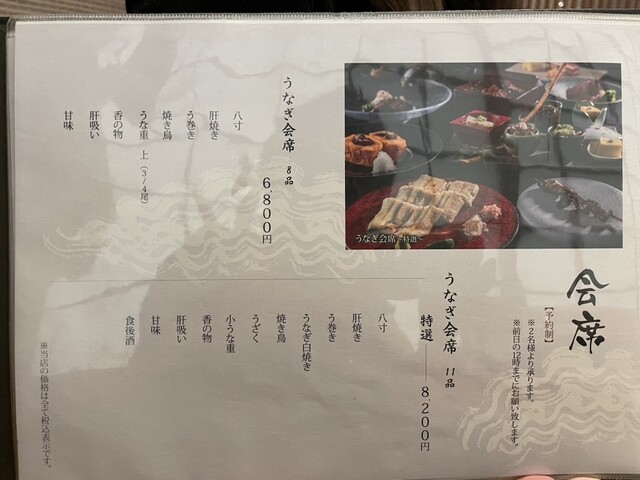 会席
【予約制】
※2名様より承ります。
※前日の12時までにお願い致します。
うなぎ会席 特選〜
うなぎ会席 8品
6,800円
八寸
肝焼き
う巻き
焼き鳥
うな重 上（3/4尾）
香の物
肝吸い
甘味
うなぎ会席 11品
特選 8,200円
八寸
肝焼き
う巻き
うなぎ白焼き
焼き鳥
うざく
小うな重
香の物
肝吸い
甘味
食後酒
※当店の価格は全て税込表示です。